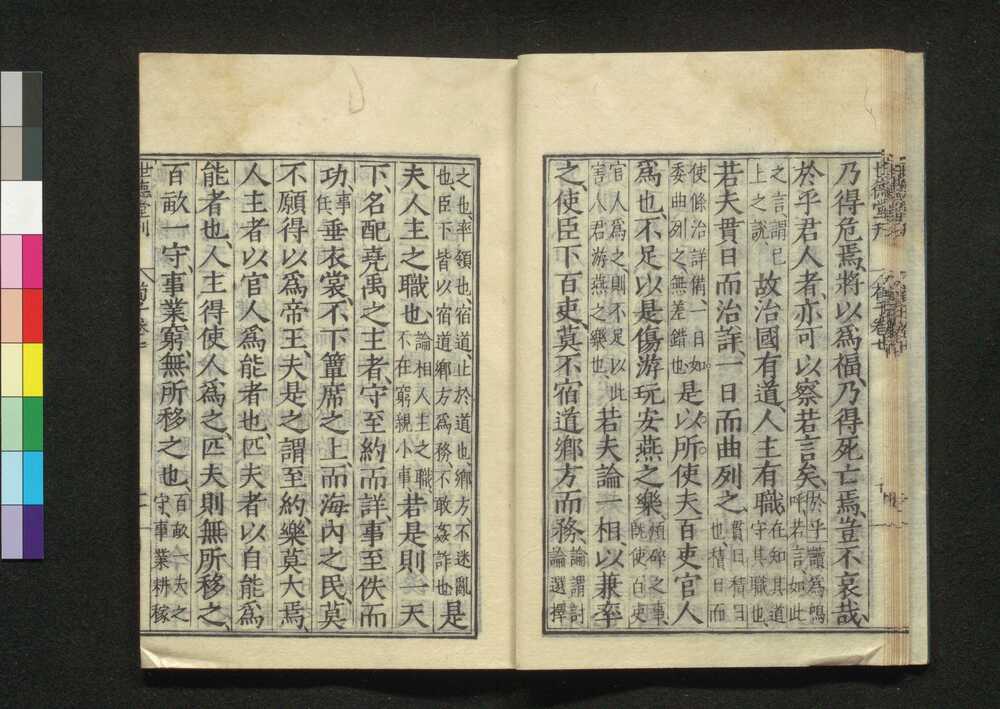 世德堂刊　荀子卷七
乃得危焉、將以爲福、乃得死亡焉、豈不哀哉、
於乎君人者、亦可以察若言矣、於乎讀爲嗚
呼若言、如此
之言、謂已
上之說、故治國有道、人主有職、在知其道
守其職也、
若夫貫日而治詳、一日而曲列之、貫日積日
也積日而
使條治詳備、一日如
委曲列之、無差錯也。是以所使夫百吏官人
爲也、不足以是傷游玩安燕之樂、煩碎之事、
既使百吏
官人爲之、則不足以此
害人君游燕之樂也 若夫論一相、以兼率
之、使臣下百吏、莫不宿道鄉方而務、論謂討
論選擇
之也、率領也、宿道、止於道也、鄉方不迷亂
也、臣下皆以宿道鄉方爲務、不敢姦詐也 是
夫人主之職也、論相人主之職
不在窮親小事 若是則一天
下、名配堯禹之主者、守至約而詳、事至佚而
功、事
任 垂衣裳、不下簟席之上、而海內之民、莫
不願得以爲帝王、夫是之謂至約、樂莫大焉、
人主者以官人爲能者也、匹夫者以自能爲
能者也、人主得使人爲之、匹夫則無所移之、
百畝一守、事業窮、無所移之也、百畝一夫之
守、事業耕稼
世德堂刊　荀子卷七